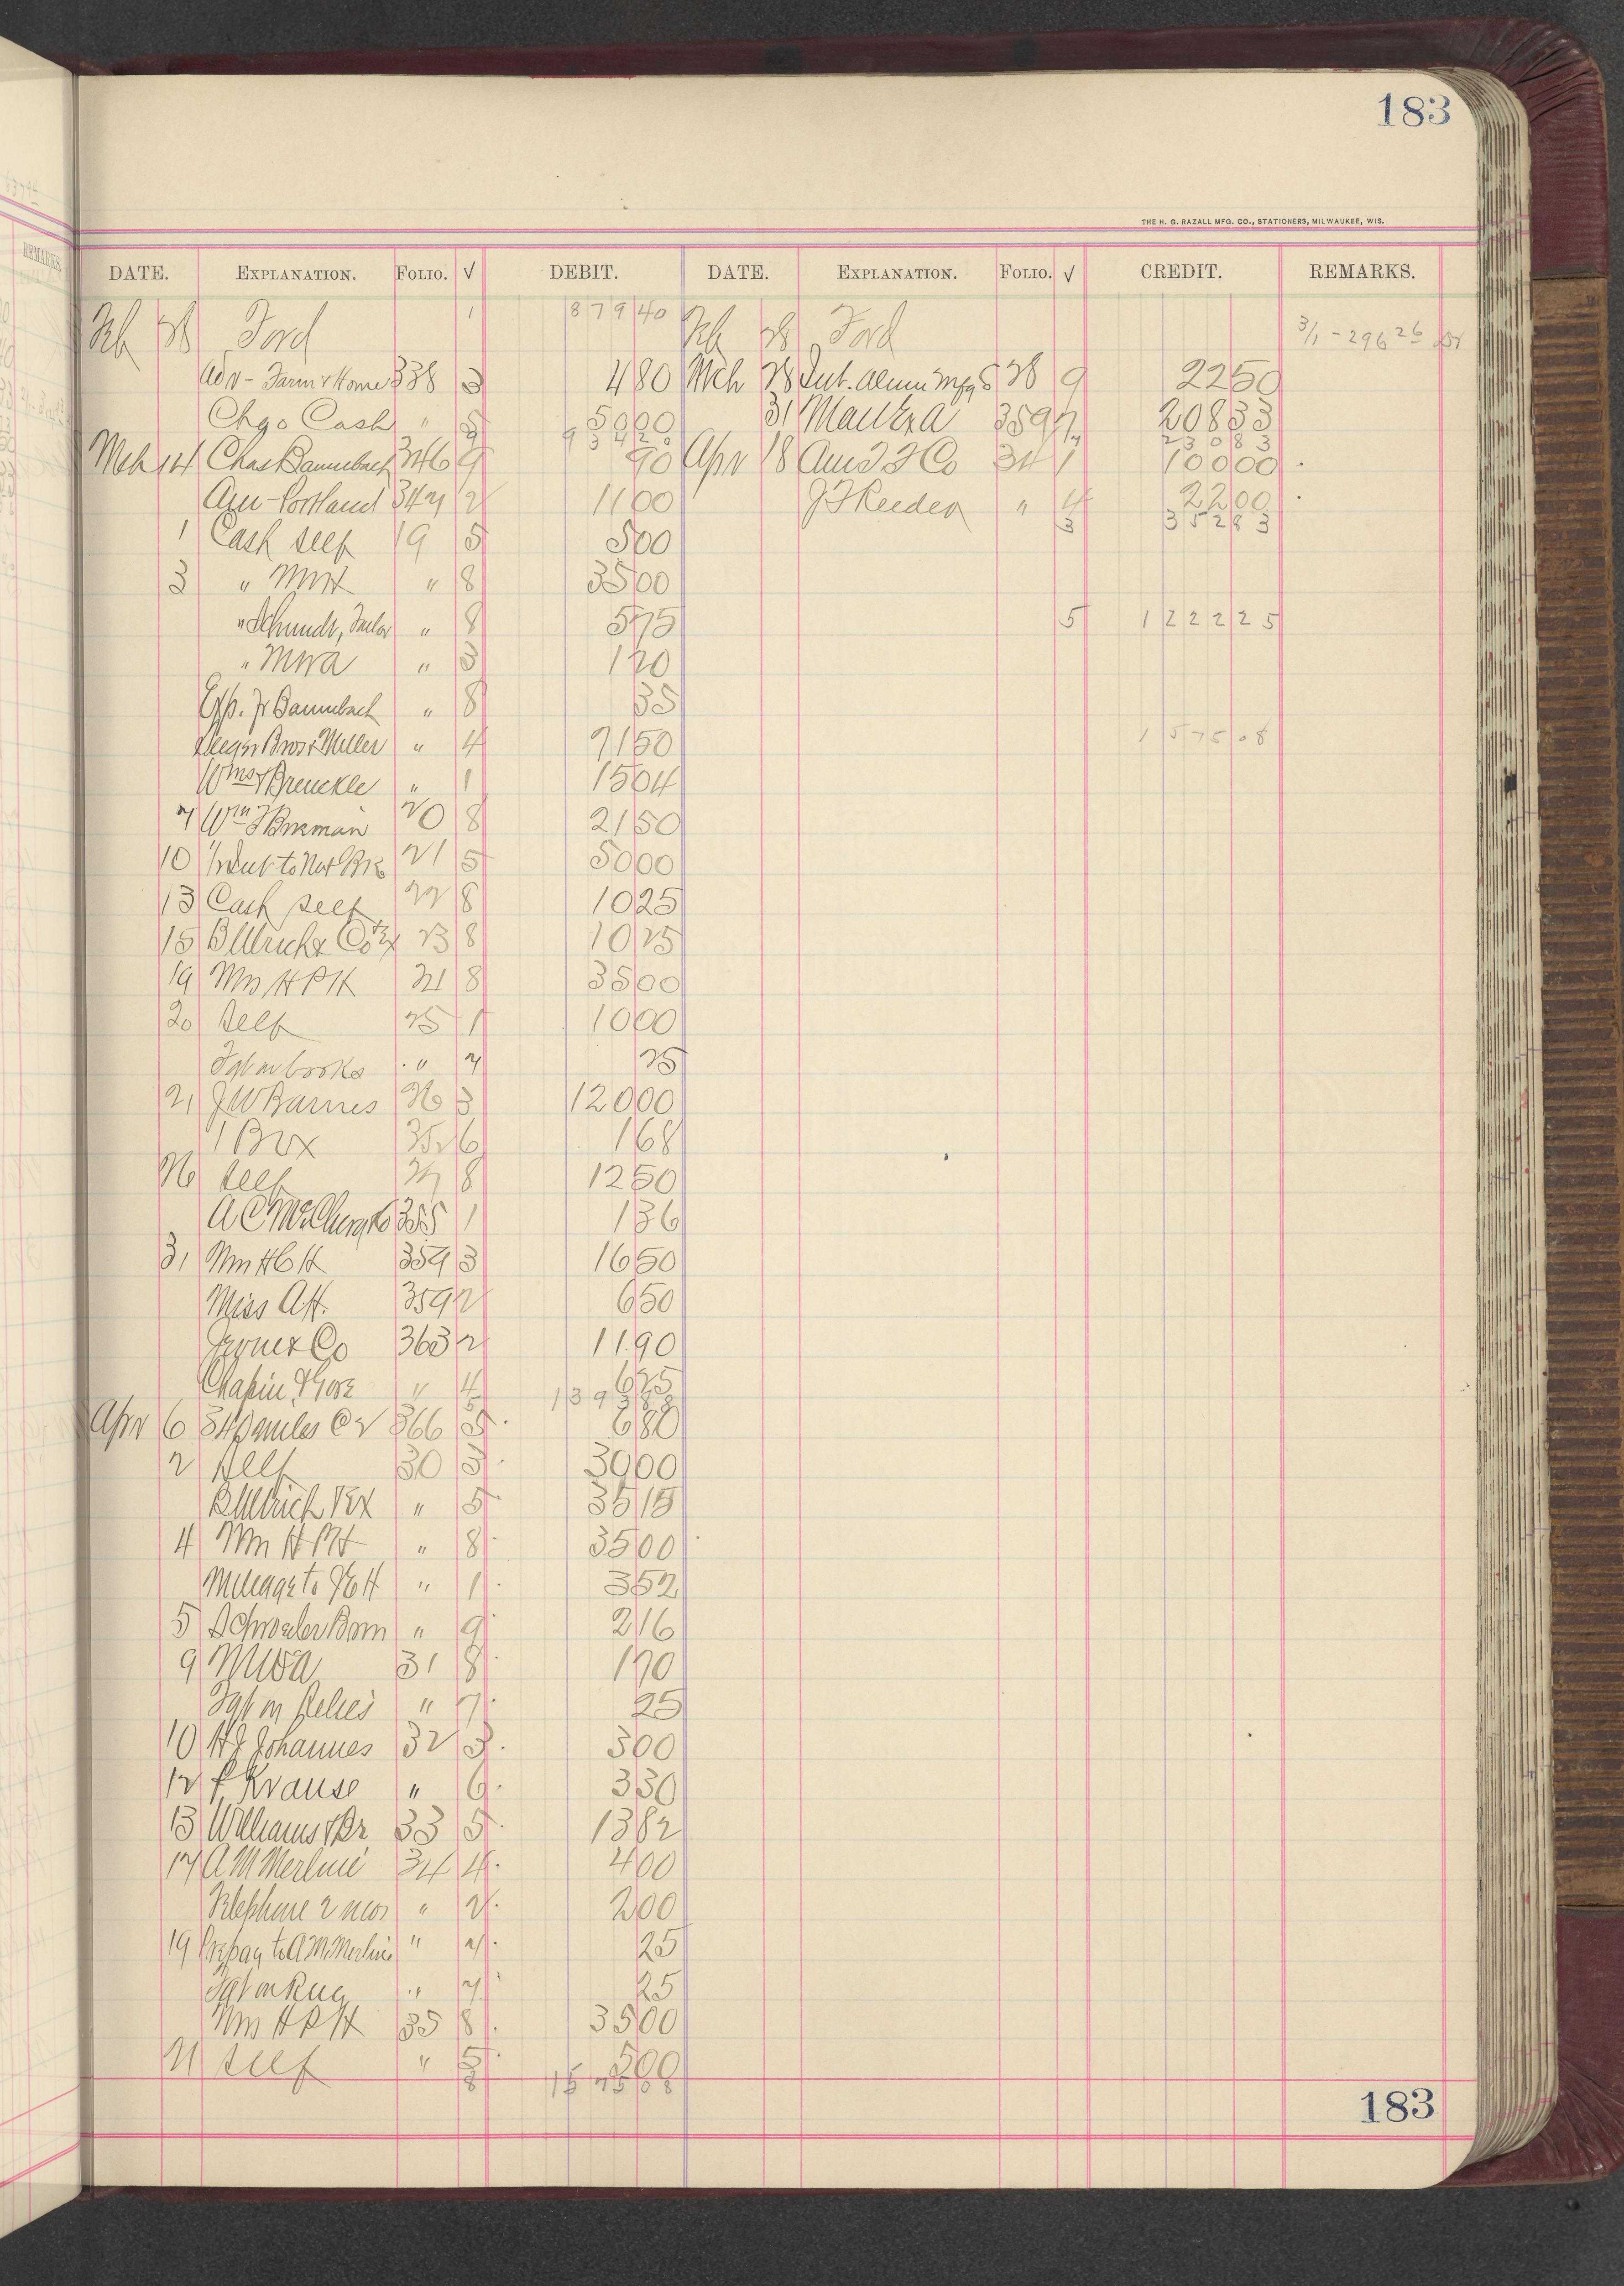 183
THE H. G. RAZALL MFG. CO., STATIONERS, MILWAUKEE, WIS.
DATE. EXPLANATION. FOLIO. √ DEBIT. DATE. EXPLANATION. FOLIO. √ CREDIT. REMARKS.
Feb 28 Ford 1 879 40 Feb 28 Ford 3/1 - 296 26 Dr
Adv - Farm & Home 338 3 4 80 Mch 28 Int. Alum Mfg 28 9 22 50
Chgo Cash " 5 50 00 31 359 7 208 33
934 20 230 83
Mch 14 Chas Baumbach 346 9 90 Apr 18 Am 34 1 100 00
Am - Portland 347 2 11 00 J F Reeder " 4 22 00
3 352 83
1 Cash self 19 5 5 00
3 " " 8 35 00
" Schmidt, Tailor " 8 5 75 5 1222 25
" MWA " 3 1 20
Exp. fr Baumbach " 8 35
Bros & Miller " 4 71 50 1575 08
Wms & Breuckle " 1 15 04
7 Wm F 20 8 21 50
10 to Nat 21 5 50 00
13 Cash self 22 8 10 25
15 B Ullrich & Co Ex 23 8 10 25
19 Mrs H P H 24 8 35 00
20 Self 25 1 10 00
Fgt on books " 7 25
21 J W Barnes 26 3 120 00
1 Box 352 6 1 68
26 Self 27 8 12 50
A C McClurg & Co 355 1 1 36
31 359 3 16 50
Miss A H. 359 2 6 50
& Co 363 2 11 90
Chapin & Gore " 4 6 25
5 1393 88
Apr 6 340 miles @ 2 366 5 6 80
2 Self 30 3 30 00
B Ullrich Ex " 5 35 15
4 Mrs H P H " 8 35 00
Mileage to " 1 3 52
5 Schroeder " 9 2 16
9 MWA 31 8 1 20
Fgt on " 7 25
10 H J Johannes 32 3 3 00
12 F Krause " 6 3 30
13 Williams & Br 33 5 13 82
17 A M Merlin 34 4 4 00
Telephone 2 mos " 2 2 00
19 Prepay to A M Merlin " 7 25
Fgt on Rug " 7 25
Mrs H P H 35 8 35 00
21 Self " 5 5 00
8 1575 08
183